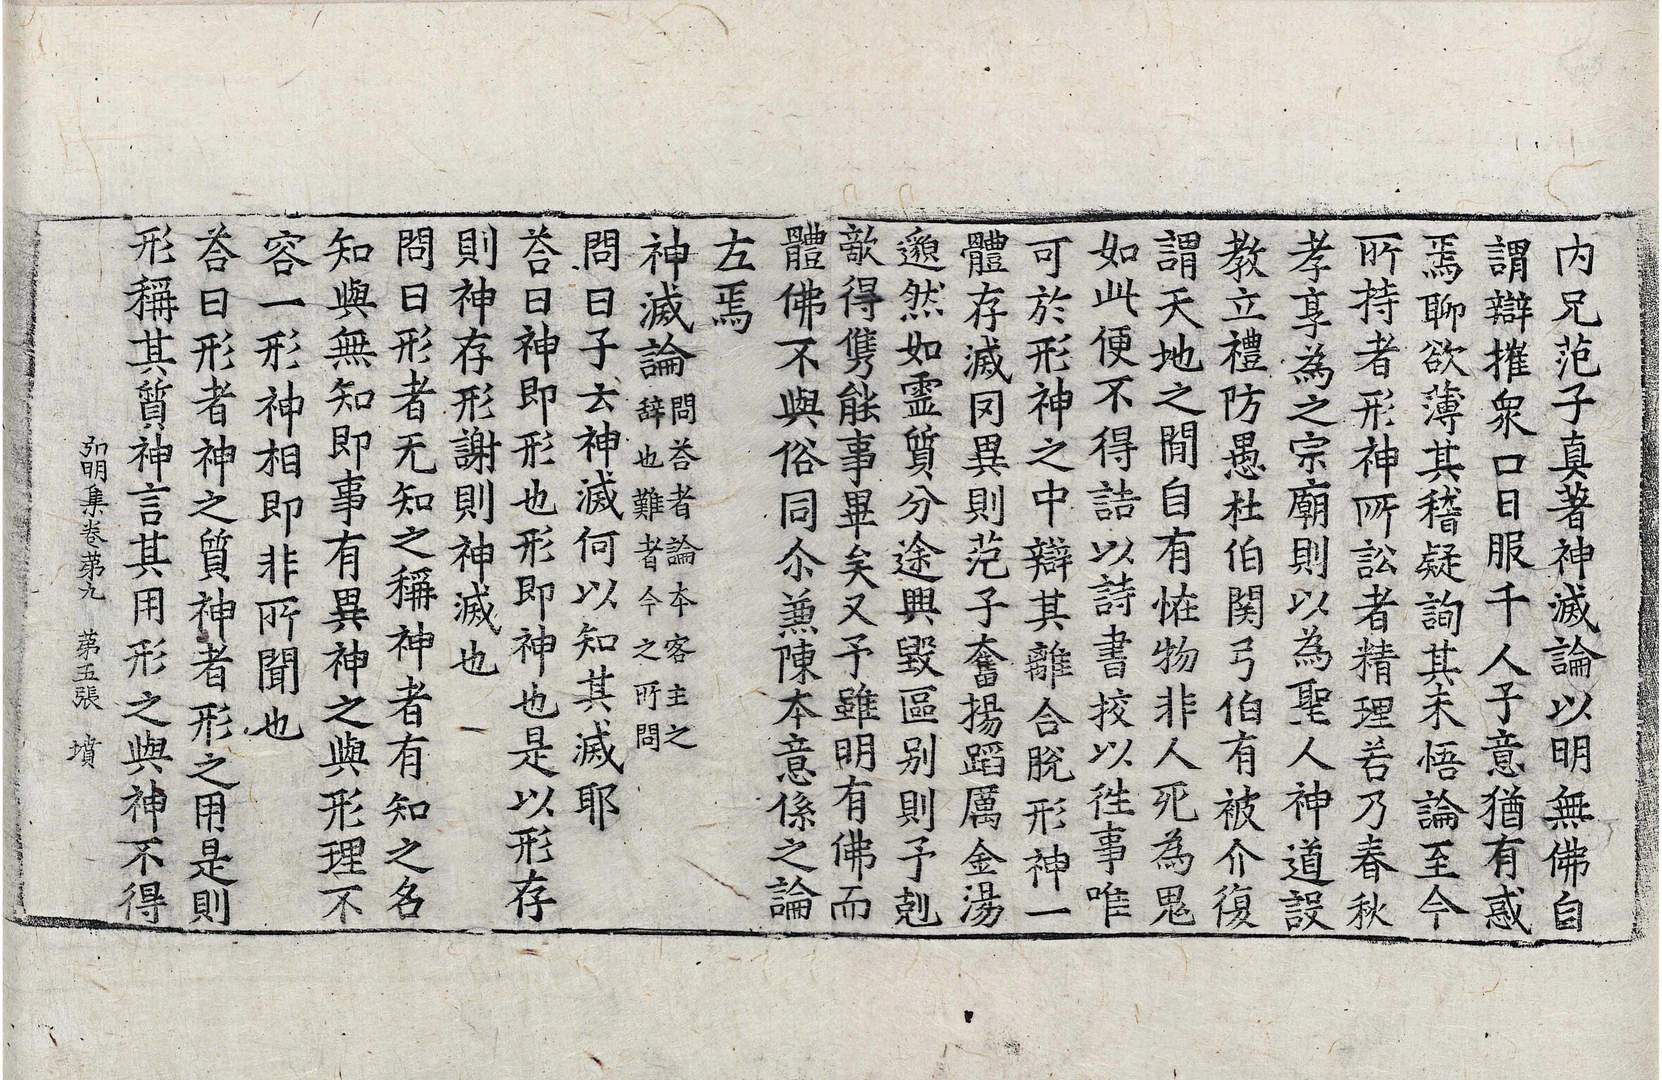 内兄范子真著神滅論以明無佛自
謂辯摧衆口日服千人子意猶有惑
焉聊欲薄其稽疑詢其未悟論至今
所持者形神所訟者精理若乃春秋
孝享為之宗廟則以為聖人神道設
教立禮防愚杜伯関弓伯有被介復
謂天地之閒自有恠物非人死為鬼
如此便不得詰以詩書挍以徃事唯
可於形神之中辯其離合脫形神一
體存滅罔異則范子奮揚蹈厲金湯
邈然如靈質分途興毀區别則予剋
敵得雋能事畢矣又予雖明有佛而
體佛不與俗同尒兼陳本意係之論
左焉
神滅論問荅者論本客主之
辝也難者今之所問
問曰子云神滅何以知其滅耶
荅曰神即形也形即神也是以形存
則神存形謝則神滅也
問曰形者无知之稱神者有知之名
知與無知即事有異神之與形理不
容一形神相即非所聞也
荅曰形者神之質神者形之用是則
形稱其質神言其用形之與神不得
弘明集卷第九 第五張 墳